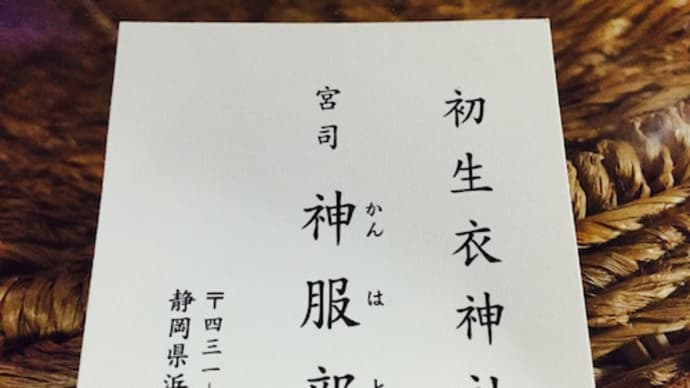 初生衣神社
かんはと
宮司 神服部
〒四三一
静岡県浜